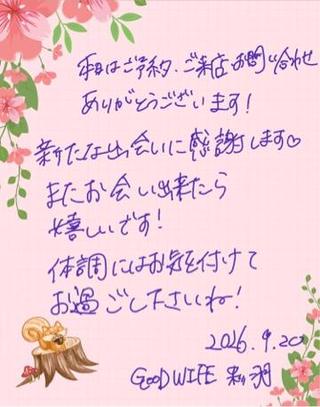 本日はご予約、ご来店、お問い合わせ
ありがとうございます!
新たな出会いに感謝します♡
またお会い出来たら
嬉しいです!
体調にはお気を付けて
お過ごし下さいね!
2026.9.20
GOOD WIFE